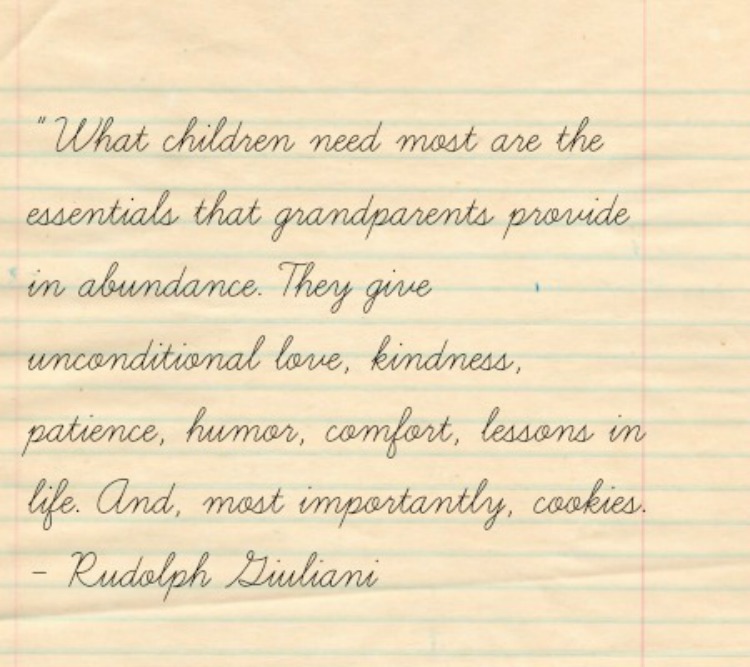 "What children need most are the
essentials that grandparents provide
in abundance. They give
unconditional love, kindness,
patience, humor, comfort, lessons in
life. And, most importantly, cookies.
- Rudolph Giuliani